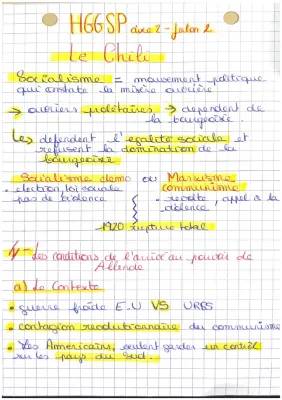 HGGSP axe 2 - jalon 2
Le Chili
Socialisme = mouvement politique
qui constate la misère ouvrière
→ ouvriers prolétaires → dépendent de
la bourgeoisie.
Les défendent l'égalité sociale et
refusent la domination de la
bourgeoisie
Socialisme démo ou Marxisme
communisme
• élection, loi sociale
pas de violence
• révolte, appel à la
violence
→ 1920 rupture total
I/ - Les conditions de l'arrivé au pouvoir de
Allende
a) Le Contexte
• guerre froide E.U VS URSS
• contagion révolutionnaire du communisme
• Les Américains veulent garder un contrôle
sur les pays du Sud.